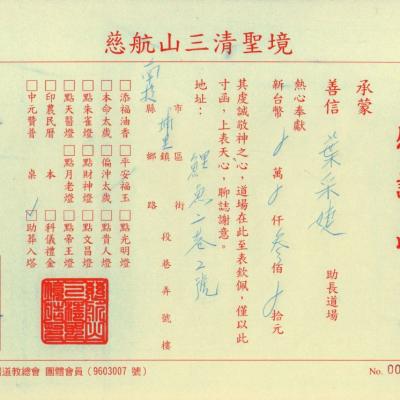 慈航山三清聖境
承蒙
善信 葉采婕 助長道場
熱心奉獻
新台幣 萬 仟叁佰 拾元
其虔誠敬神之心，道場在此至表欽佩，僅以此
寸函，上表天心，聊誌謝意。
地址：
南投 縣 市 埔里 鄉 鎮 區 路 街 鯉魚二巷2號 段 巷 弄 號 樓
□添福油香 □平安福玉 □點光明燈
□本命太歲 □偏沖太歲 □點貴人燈
□點朱雀燈 □點財神燈 □點文昌燈
□點天醫燈 □點月老燈 □點帝王燈
□印農民曆 本 □科儀禮金
□中元贊普 桌 ☑助葬入塔
道教總會 團體會員 (9603007 號)
No. 00